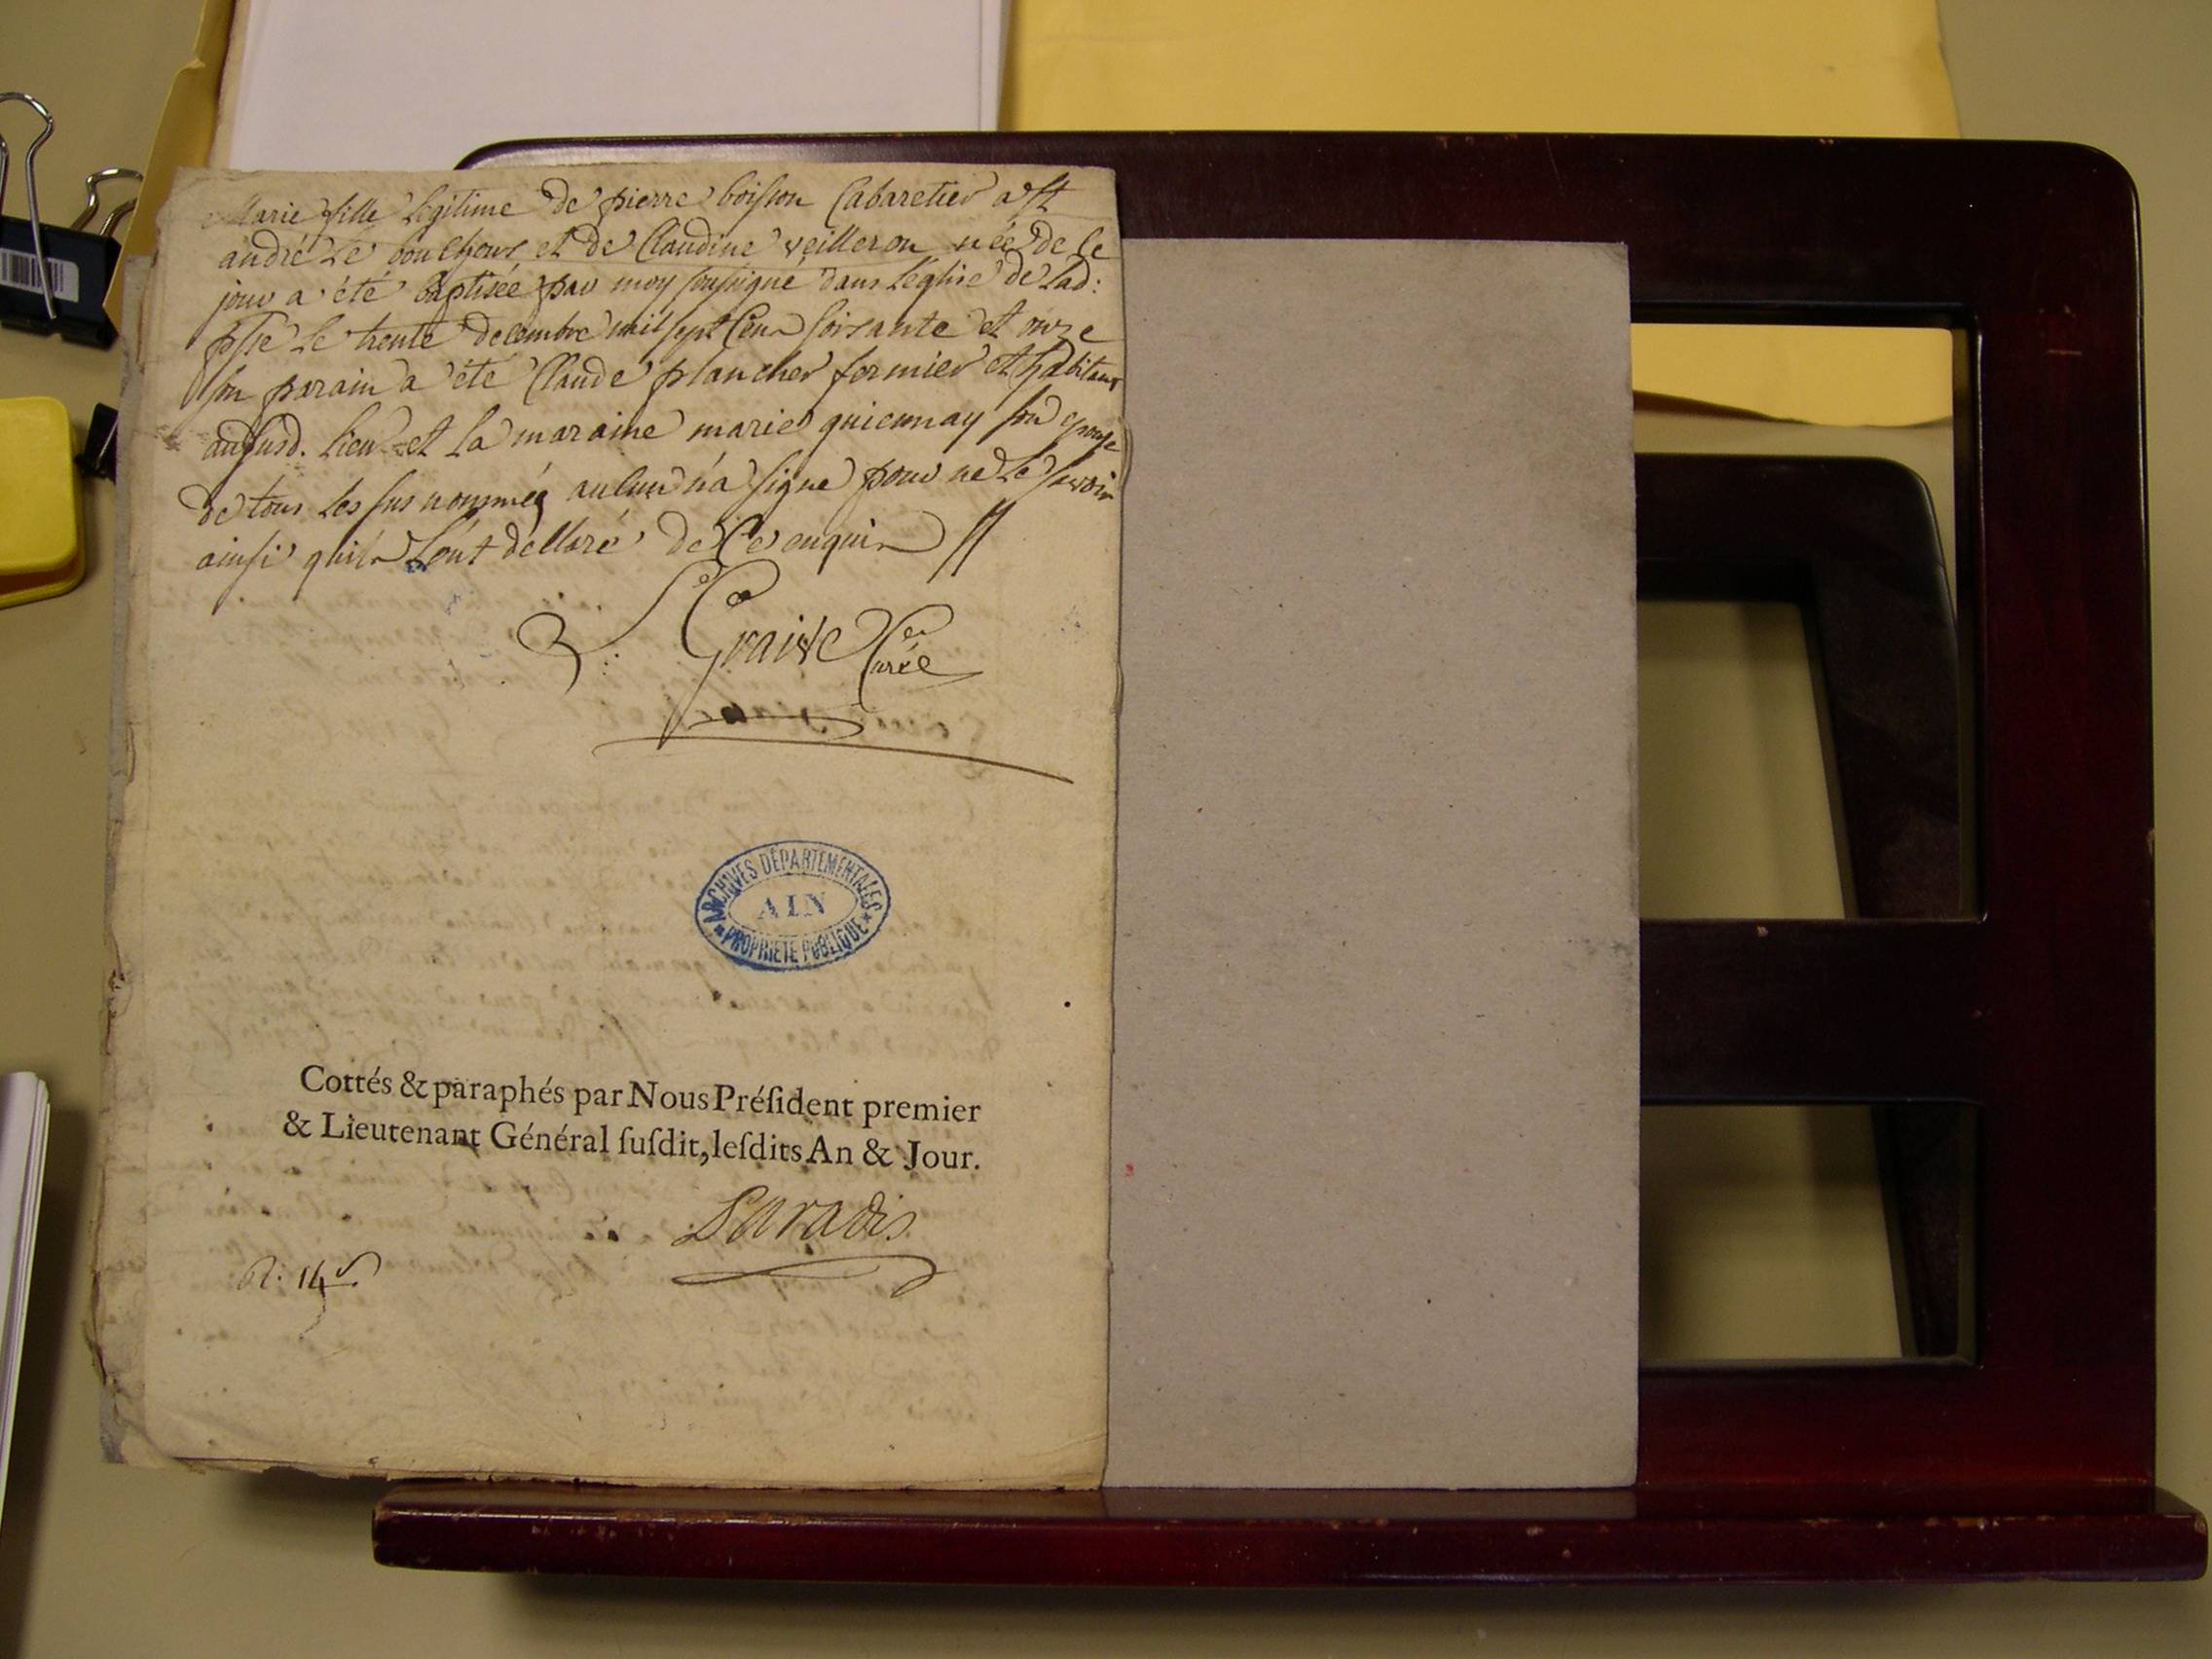 Marie fille legitime de pierre boisson Cabaretier a St
andré le bouchoux et de Claudine veilleron née de ce
jour a été baptisée par moy soussigné dans l'eglise de lad:
psse le trente decembre mil sept Cens soisante et onze
son parain a été Claude plancher fermier et habitant
audusd. lieu et la maraine marie guiennay son epouse
de tous les sus nommés aucun n'a signé pour ne le savoir
ainsi quils l'ont déclaré de ce enquis
Graive Curé
ARCHIVES DÉPARTEMENTALES
AIN
PROPRIÉTÉ PUBLIQUE
Cottés & paraphés par Nous Préſident premier
& Lieutenant Général ſuſdit, leſdits An & Jour.
Paradis
R: 14 s